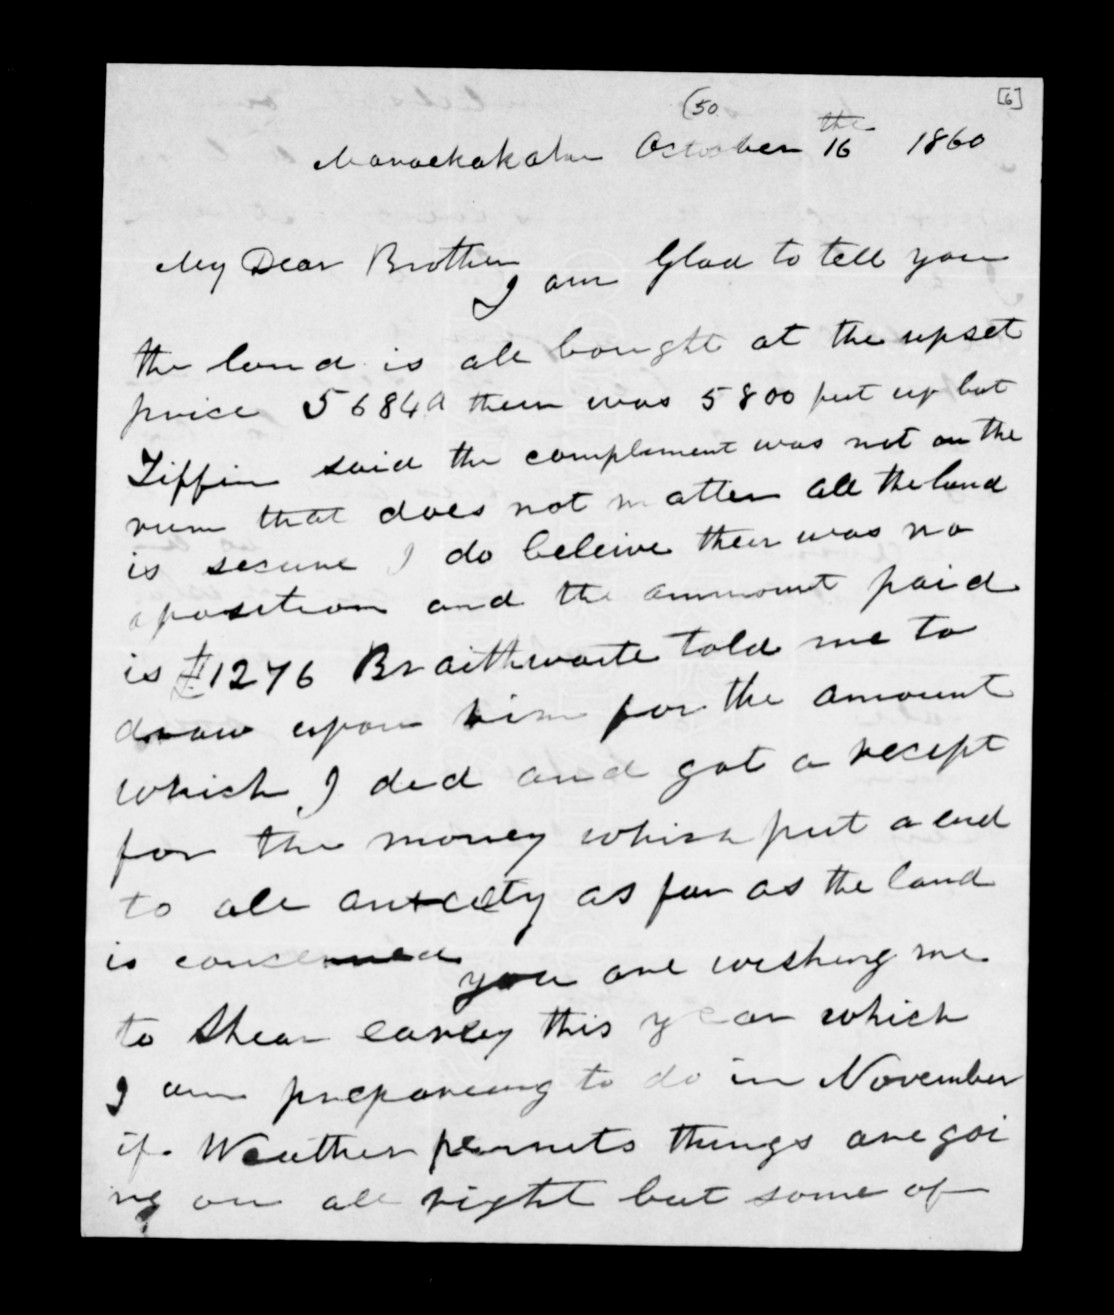 (50.
[6]
Maraekakaho October 16 the 1860
My Dear Brother
I am Glad to tell you
the land is all bought at the upset
price 5684a their was 5800 put up but
Tiffin said the complement was not on the
run that does not matter all the land
is secure I do beleive their was no
aposition and the ammount paid
is £1276 Braithwaite told me to
draw upon him for the amount
which I did and got a recept
for the money which put a end
to all anxcity as far as the land
is concerned
you are wishing me
to Shear earley this year which
I am prepareing to do in November
if Weather permits things are goi
ng on all right but some of